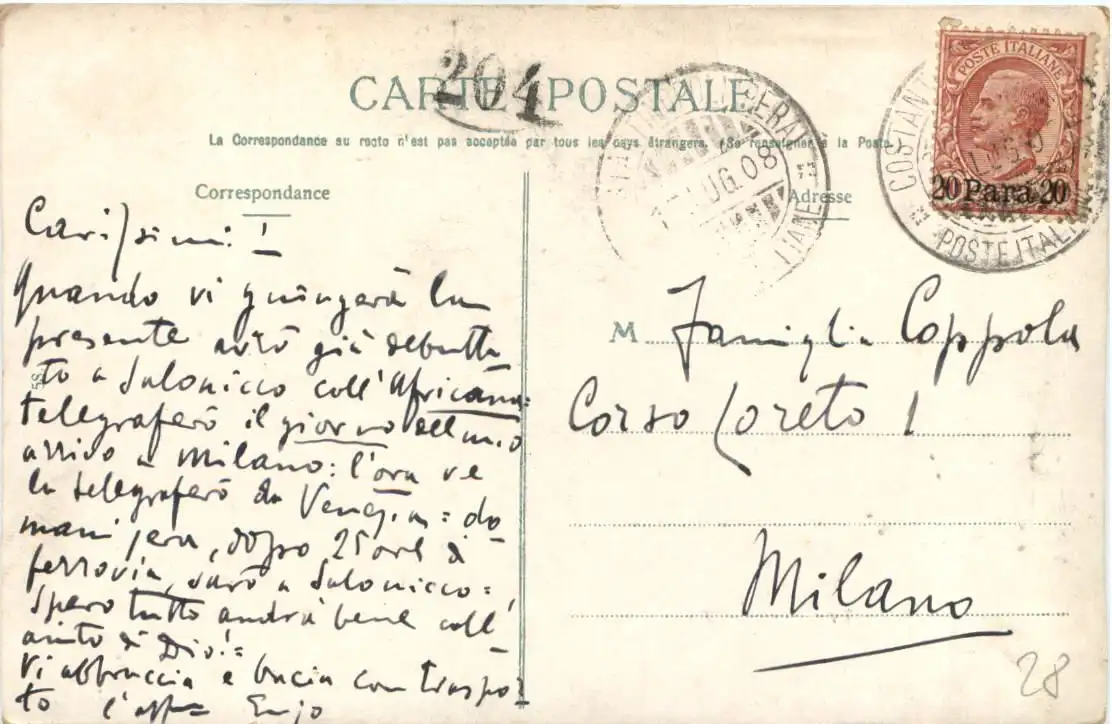 CARTE POSTALE
204
La Correspondance au recto n'est pas acceptée par tous les pays étrangers. (Se renseigner à la Poste)
Correspondance
Adresse
LUG. 08
POSTE ITALIANE
20 Para 20
COSTANT
POSTE ITALIANE
Carissimi!
Quando vi giungerà la
presente avrò già debutta-
to a Salonicco coll'Africana=
telegraferò il giorno dell mio
arrivo a Milano: l'ora ve
la telegraferò da Venezia= do
mani sera, dopo 25 ore di
ferrovia, sarò a Salonicco=
Spero tutto andrà bene coll'
aiuto di Dio!=
Vi abbraccia e bacia con traspor
to l'aff=
M Famiglia Coppola
Corso Loreto 1
Milano
28